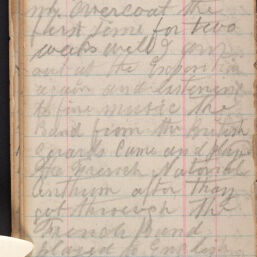 my overcoat the
first time for two
weeks well I am
out at the Exposition
again and listening
to fine music the
band from the British
guards came and played
the French National
anthem after they
got through the
French band
played the English